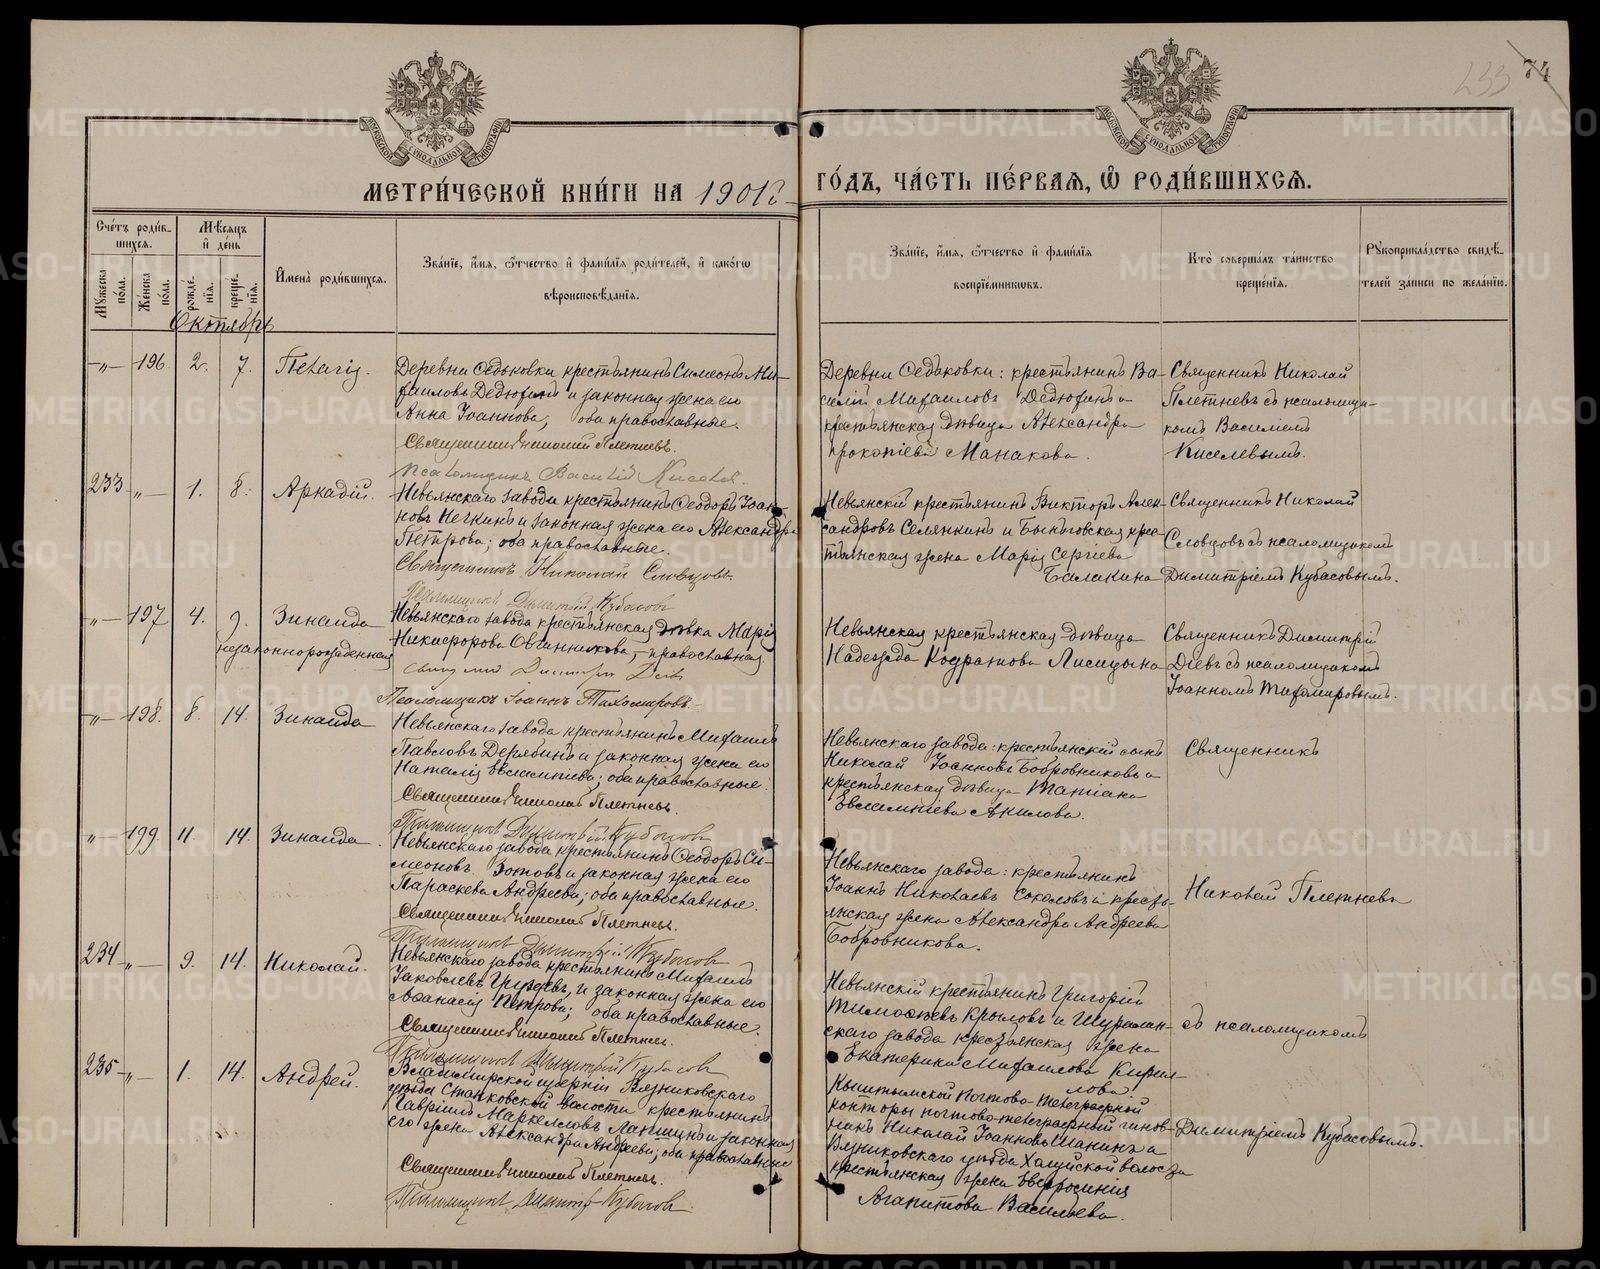 233 74
МОСКОВСКОЙ СѴНОДАЛЬНОЙ ТИПОГРАФІИ
МОСКОВСКОЙ СѴНОДАЛЬНОЙ ТИПОГРАФІИ
МЕТРИ́ЧЕСКОЙ КНИ́ГИ НА 1901 г.
ГО́ДЪ, ЧА́СТЬ ПЕ́РВАѦ, Ѡ҆ РОДИ́ВШИХСѦ.
Сче́тъ роди́вшихся.
Мѣ́сяцъ и҆ де́нь
Мꙋ́жеска по́ла.
Же́нска по́ла.
рожде́нїя.
креще́нїя.
И҆мена̀ роди́вшихся.
Зва́нїе, и҆́мя, ѻ҆́тчество и҆ фами́лїя роди́телей, и҆ како́гѡ
вѣроисповѣ́данїя.
Зва́нїе, и҆́мя, ѻ҆́тчество и҆ фами́лїя
воспрїе́мникѡвъ.
Кто̀ соверша́лъ та́инство
креще́нїя.
Рꙋкоприкла́дство свидѣ́телей
за́писи по жела́нїю.
Октябрь
-„- 196. 2. 7. Пелагія.
Деревни Сѣдьковки крестьянинъ Симеонъ Ми-
хаиловъ Дедюхинъ и законная жена его
Анна Іоаннова; оба православные.
Священникъ Николай Плетневъ.
Псаломщикъ Василій Киселевъ.
Деревни Сѣдяковки: крестьянинъ Ва-
силій Михаиловъ Дедюхинъ и
крестьянская дѣвица Александра
Прокопіева Манакова.
Священникъ Николай
Плетневъ съ псаломщи-
комъ Василіемъ
Киселевымъ.
233 -„- 1. 8. Аркадій.
Невьянскаго завода крестьянинъ Ѳеодоръ Іоан-
новъ Нечкинъ и законная жена его Александра
Петрова; оба православные.
Священникъ Николай Словцовъ.
Псаломщикъ Димитрій Кубасовъ
Невьянскій крестьянинъ Викторъ Алек-
сандровъ Селянкинъ и Быньговская крес-
тьянская жена Марія Сергіева
Балакина
Священникъ Николай
Словцовъ съ псаломщикомъ
Димитріемъ Кубасовымъ.
-„- 197 4. 9. Зинаида
незаконнорожденная
Невьянскаго завода крестьянская дѣвка Марія
Никифорова Овчинникова, православная.
Священникъ Димитрій Діевъ
Псаломщикъ Іоаннъ Тихомировъ.
Невьянская крестьянская дѣвица
Надежда Кодратова Лисицына
Священникъ Димитрій
Діевъ съ псаломщикомъ
Іоанномъ Тихомировымъ.
-„- 198. 8. 14. Зинаида
Невьянскаго завода крестьянинъ Михаилъ
Павловъ Дерябинъ и законная жена его
Наталія Евлампіева; оба православные.
Священникъ Николай Плетневъ.
Псаломщикъ Димитрій Кубасовъ
Невьянскаго завода: крестьянскій сынъ
Николай Іоанновъ Бобровниковъ и
крестьянская дѣвица Татіана
Евлампіева Акилова.
Священникъ
-„- 199. 11. 14. Зинаида.
Невьянскаго завода крестьянинъ Ѳеодоръ Си-
меоновъ Зотовъ и законная жена его
Параскева Андреева; оба православные.
Священникъ Николай Плетневъ.
Псаломщикъ Димитрій Кубасовъ
Невьянскаго завода: крестьянинъ
Іоаннъ Николаевъ Соколовъ и кресть-
янская жена Александра Андреева
Бобровникова.
Николай Плетневъ
234 -„- 9. 14. Николай.
Невьянскаго завода крестьянинъ Михаилъ
Іаковлевъ и законная жена его
Аѳанасія Петрова; оба православные.
Священникъ Николай Плетневъ.
Псаломщикъ Димитрій Кубасовъ
Невьянскій крестьянинъ Григорій
Тимоѳеевъ Крыловъ и Шуралин-
скаго завода крестьянская жена
Екатерина Михаилова Кирил-
лова.
съ псаломщикомъ
235 -„- 1. 14. Андрей.
Владимирской губерніи Вязниковскаго
уѣзда Станковской волости крестьянинъ
Гавріилъ Маркелловъ Лапшинъ и законная
его жена Александра Андреева; оба православные
Священникъ Николай Плетневъ.
Псаломщикъ Димитр. Кубасовъ.
Кыштымской почтово-телеграфной
конторы почтово-телеграфный чинов-
никъ Николай Іоанновъ Шанинъ и
Вязниковскаго уѣзда Холуйской волости
крестьянская жена Евфросинія
Агапитова Васильева.
Димитріемъ Кубасовымъ.
METRIKI.GASO-URAL.RU